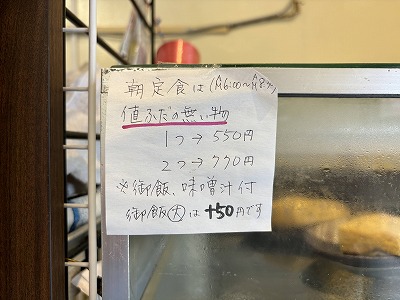 朝定食は(AM6:00〜AM8:45)
値ふだの無い物
1つ→550円
2つ→770円
※御飯、味噌汁付
御飯(大)は+50円です